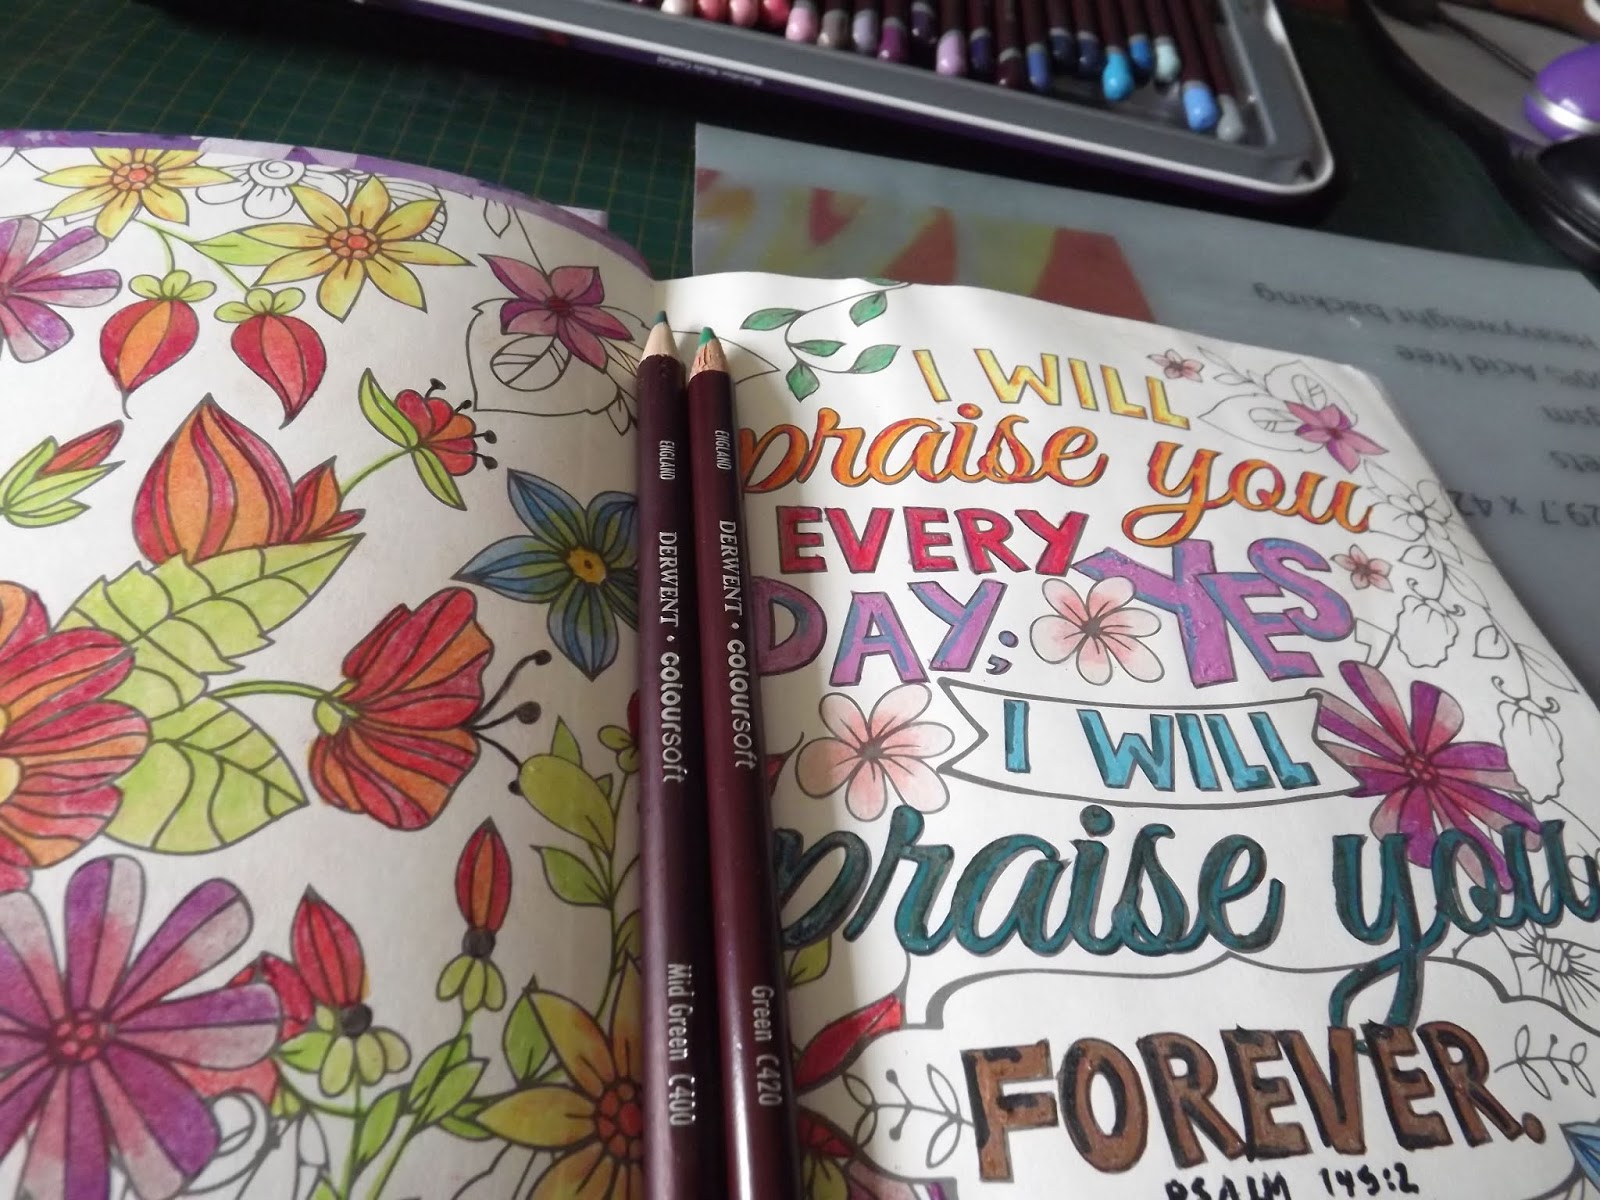 I WILL
praise you
EVERY
DAY; YES
I WILL
praise you
FOREVER.
PSALM 145:2
ENGLAND DERWENT • COLOURSOFT Mid Green C400
ENGLAND DERWENT • COLOURSOFT Green C420
Heavyweight backing
Acid free
gsm
29.7 x 42